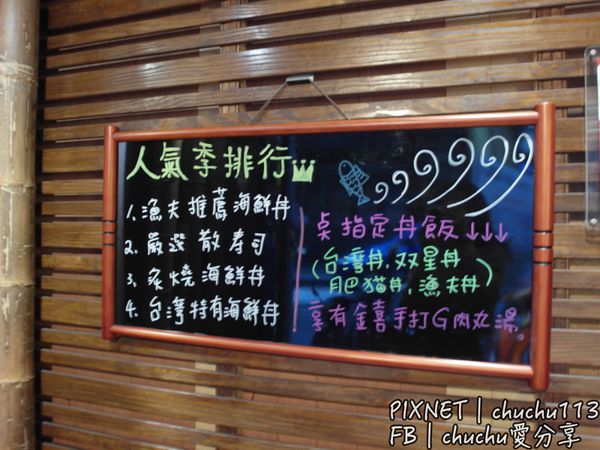 人氣季排行
1. 漁夫推薦海鮮丼
2. 嚴選散寿司
3. 炙燒海鮮丼
4. 台灣特有海鮮丼
点指定丼飯↓↓↓
(台湾丼,双星丼
肥猫丼,漁夫丼)
享有鐘手打G肉丸湯。
PIXNET | chuchu113
FB | chuchu愛分享